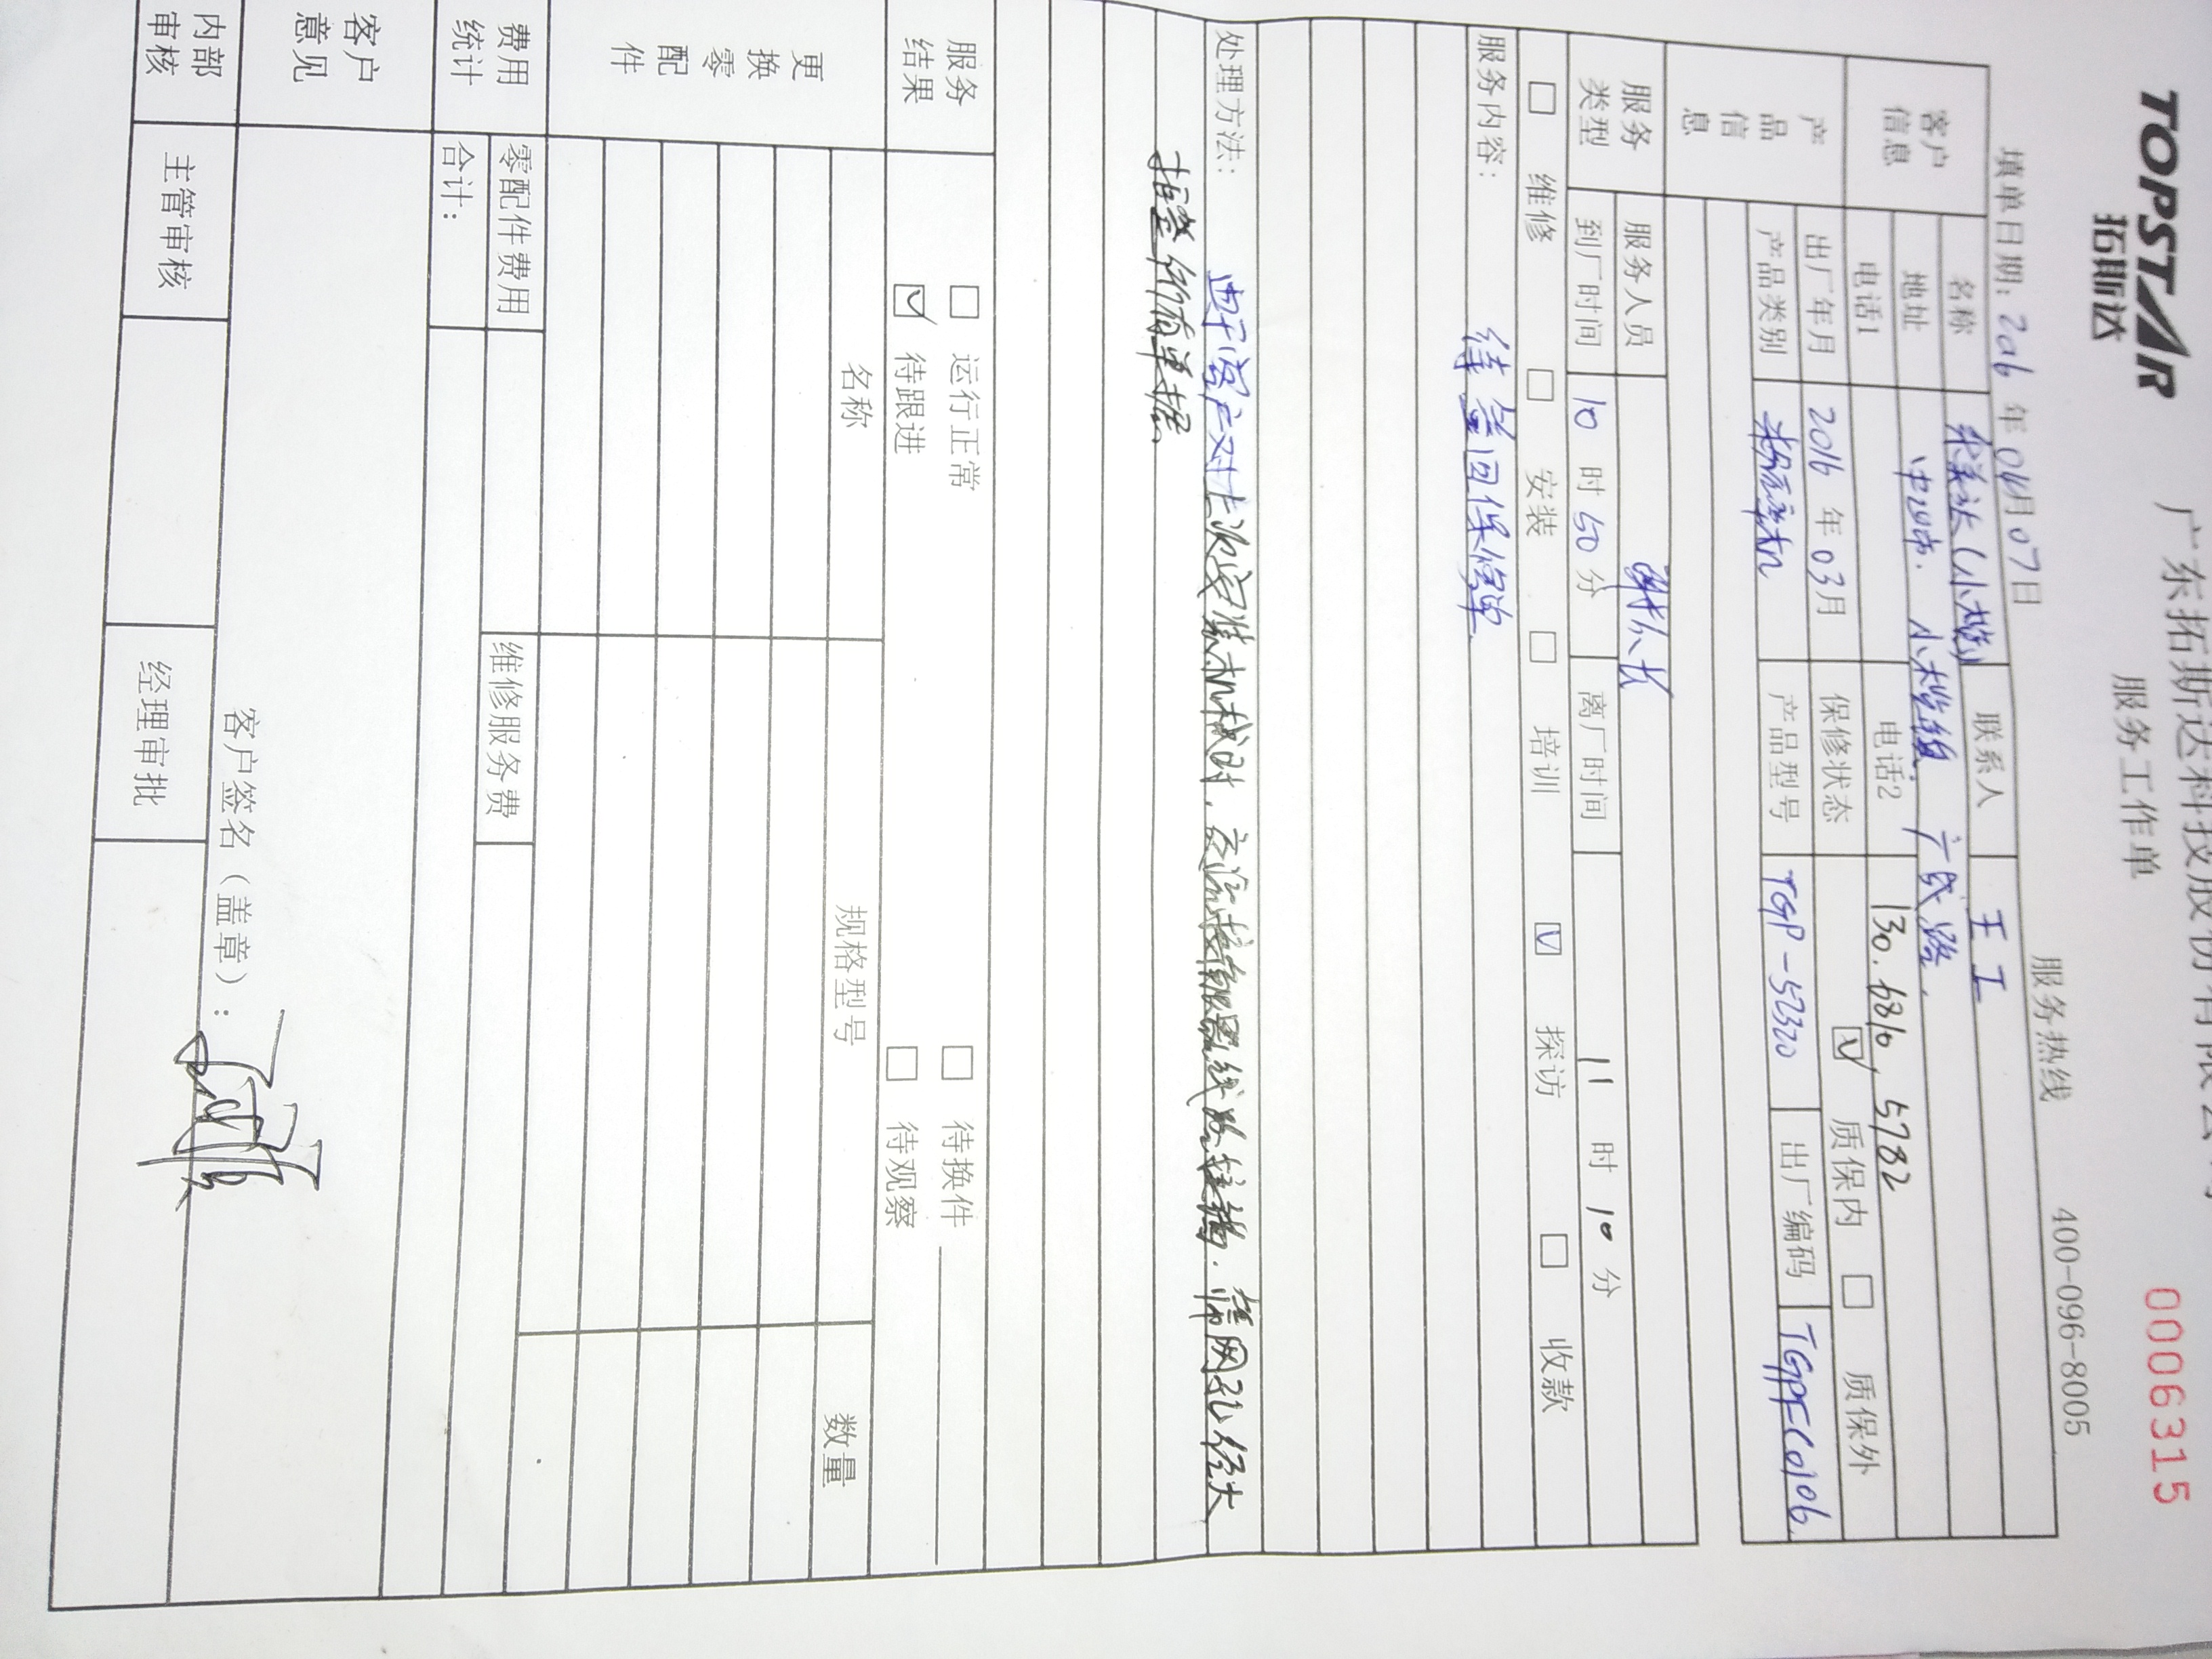 TOPSTAR
拓斯达
广东拓斯达科技股份有限公司
服务工作单
0006315
填单日期: 2016 年 04月 07日
服务热线 400-096-8005
客户信息 名称 (小榄) 联系人 王工
地址 中山市. 小榄镇 广成路.
电话1 电话2 130.6816.5782
产品信息 出厂年月 2016 年 03月 保修状态 ☑ 质保内 □ 质保外
产品类别 粉碎机 产品型号 TGP-52320 出厂编码 TGPFC0106
服务类型 服务人员
到厂时间 10 时 50 分 离厂时间 11 时 10 分
□ 维修 □ 安装 □ 培训 ☑ 探访 □ 收款
服务内容:
待签回保修单
处理方法:
由于客户对上次安装机械时, 筛网孔径大
拒签所有单据.
服务结果 □ 运行正常 □ 待换件
☑ 待跟进 □ 待观察
更换零配件 名称 规格型号 数量
费用统计 零配件费用 维修服务费
合计:
客户意见
客户签名(盖章):
内部审核 主管审核 经理审批